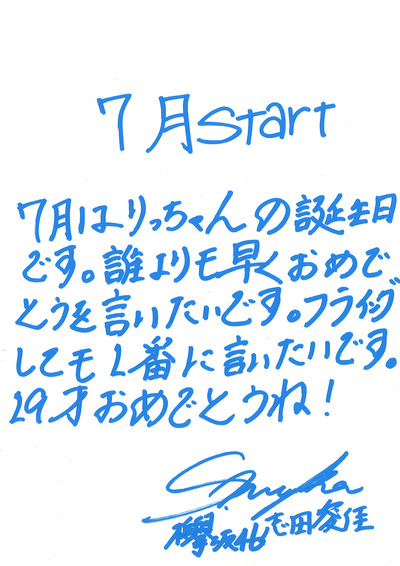 7月start
7月はりっちゃんの誕生日
です。誰よりも早くおめで
とうを言いたいです。フライング
しても1番に言いたいです。
19才おめでとうね!
欅坂46 志田愛佳